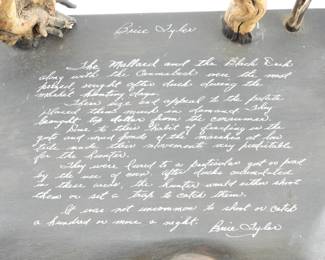 Brice Tyler
The Mallard and the Black Duck
along with the Canvasback were the most
prized sought after duck during the
market hunting days.
There size and appeal to the palate
placed them much in demand. They
brought top dollar from the consumer.
Due to their habit of feeding in the
guts and ponds of the marshes at low
tide made their movements very predictable
for the hunter.
They were lured to a particular gut or pond
by the use of corn. After ducks accumulated
in these areas, the hunter would either shoot
them or set a trap to catch them.
It was not uncommon to shoot or catch
a hundred or more a night.
Brice Tyler